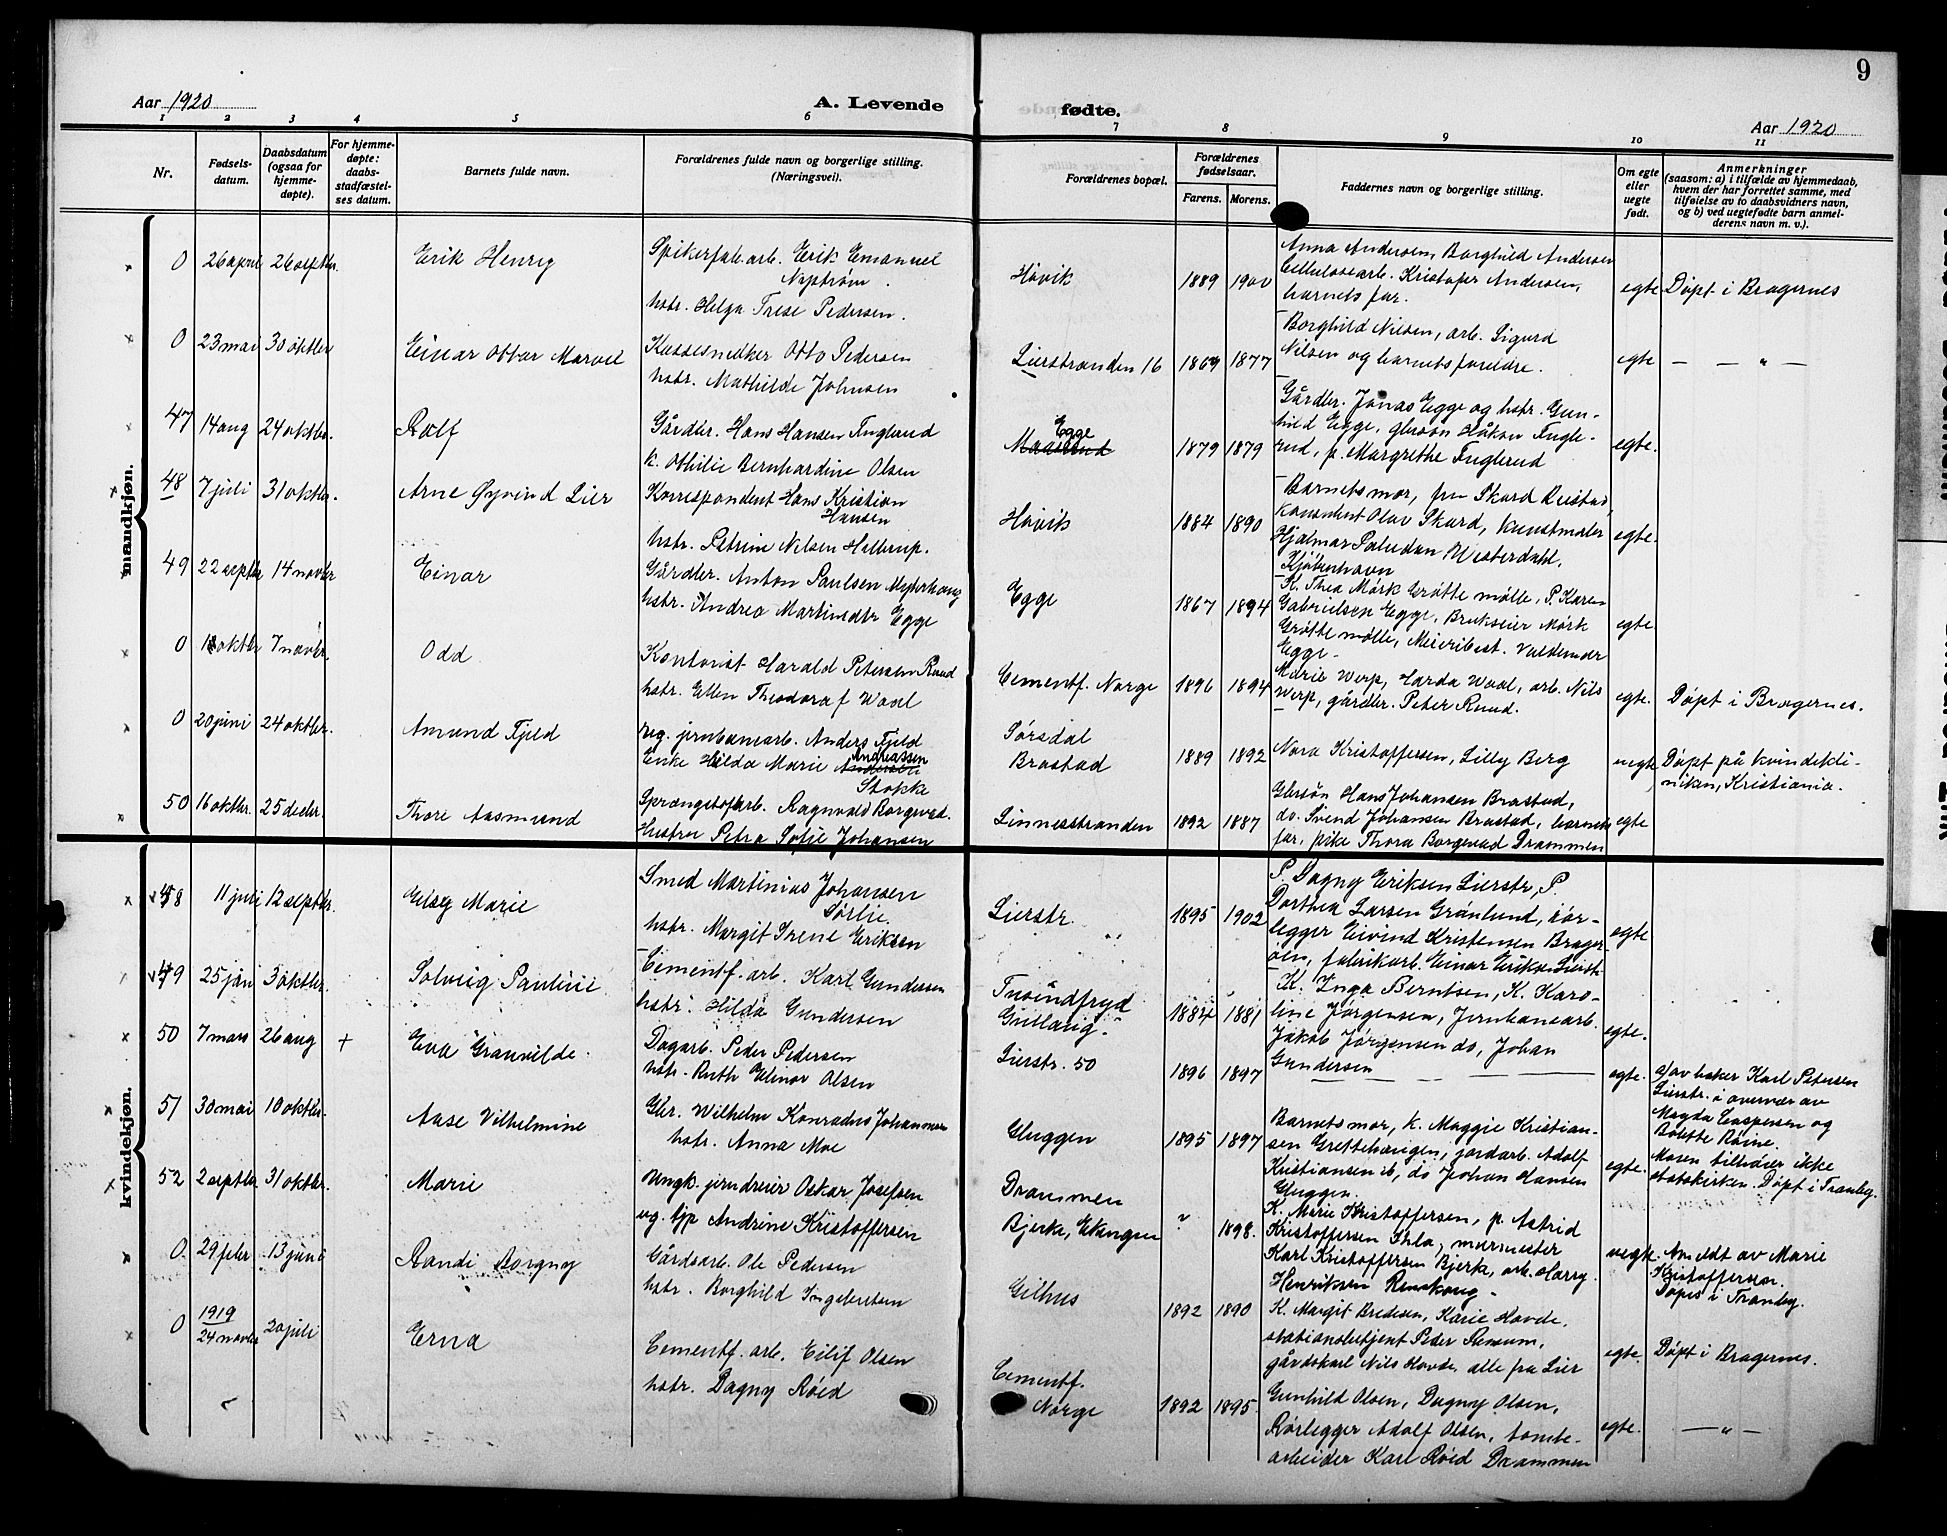 9
Aar 1920
A. Levende
fødte.
Aar 1920
1 2 3 4 5 6 7 8 9 10 11
Nr.
Fødsels-
datum.
Daabsdatum
(ogsaa for
hjemme-
døpte).
For hjemme-
døpte:
daabs-
stadfæstel-
ses datum.
Barnets fulde navn.
Forældrenes fulde navn og borgerlige stilling.
(Næringsvei).
Forældrenes bopæl.
Forældrenes
fødselsaar.
Farens. Morens.
Faddernes navn og borgerlige stilling.
Om egte
eller
uegte
født.
Anmerkninger
(saasom: a) i tilfælde av hjemmedaab,
hvem der har forrettet samme, med
tilføielse av to daabsvidners navn,
og b) ved uegtefødte barn anmel-
derens navn m. v.).
mandkjøn.
0 26 april 26 septbr. Erik Henry
Spikerfab.arb. Erik Emanuel
hstr. Helga Trese Pedersen.
Høvik 1889 1900
Anna Andersen, Borghild Andersen
Cellulosearb. Kristofer Andersen,
barnets far.
egte Døpt i Bragernes
0 23 mai 30 oktbr Einar Ottar Marvel
Kassesnedker Otto Pedersen
hstr. Mathilde Johnsen
Lierstranden 16 1869 1877
Borghild Nilsen, arb. Sigurd
Nilsen og barnets foreldre.
egte — — " —
47 14 aug 24 oktbr. Rolf
Gårdbr. Hans Hansen Fuglerud
k. Othilie Bernhardine Olsen
Egge 1879 1879
Gårdbr. Jonas Egge og hstr. Gun-
hild Egge, gbrsøn Håkon Fugle-
rud, p. Margrethe Fuglerud
egte.
48 7 juli 31 oktbr. Arne Øyvind Lier
Korrespondent Hans Kristian
Hansen
hstr. Petrine Nilsen Hallerup.
Høvik 1884 1890
Barnets mor, fru Skard Reistad,
konsulent Olav Skard, kunstmaler
Hjalmar Paludan Westerdahl,
Kjøbenhavn
egte.
49 22 septbr 14 novbr Einar
Gårdbr. Anton Paulsen
hstr. Andrea Martinsdtr Egge
Egge 1867 1894
K. Thea Mørk Grøtte mølle, P. Karen
Gabrielsen Egge, Brukseier Mørk
Grøtte mølle, Meieribest. Valdemar
Egge
egte.
0 oktbr 7 novbr. Odd
Kontorist Harald Petersen Ruud
hstr. Ellen Theodora f Waal
Cementf. Norge 1896 1894
Marie Werp, Harda Waal, arb. Nils
Werp, gårdbr. Peter Ruud.
egte. Døpt i Bragernes.
0 20 juni 24 oktbr. Amund Fjeld
ug. jernbanearb. Anders Fjeld
Enke Hilda Marie Andreassen
Stokke
Sørsdal
Brastad 1889 1892
Nora Kristoffersen, Lilly Berg
uegte Døpt på kvindekli-
nikken, Kristiania.
50 16 oktbr. 25 decbr. Thore Aasmund
Sprængstofarb. Ragnvald Borgevad.
Hustru Petra Sofie Johansen
Linnesstranden 1892 1887
Gbrsøn Hans Johansen Brastad,
do. Svend Johansen Brastad, barnets
far, pike Thora Borgevad Drammen
egte
kvindekjøn.
48 11 juli 12 septbr. Elsy Marie
Smed Martinius Johansen
Sørlie
hstr. Margit Irene Eriksen
Lierstr. 1895 1902
P. Dagny Eriksen Lierstr, P.
Dorthea Larsen Grønlund, rør-
legger Eivind Kristensen Brager-
øen, fabrikarb. Einar Eriksen Lierstr.
egte
49 25 jan 3 oktbr. Solveig Pauline
Cementf. arb. Karl Gundersen
hstr. Hilda Gundersen
Tusindfryd
Gullaug. 1884 1881
K. Inga Berntsen, K. Karo-
line Jørgensen, Jernbanearb.
Jakob Jørgensen do, Johan
Gundersen
egte.
50 7 mars 26 aug + Eva Granvilde.
Dagarb. Peder Pedersen
hstr. Ruth Elinor Olsen
Lierstr. 50 1896 1897
— — — —
egte. a) av baker Karl Petersen
Lierstr. i overvær av
Magda Caspersen og
Bolette Røine.
51 30 mai 10 oktbr. Aase Vilhelmine
Gbr. Wilhelm Konradus Johannesen
hstr. Anna Moe
Gluggen 1895 1897
Barnets mor, k. Maggie Kristian-
sen Grettehaugen, jordarb. Adolf
Kristiansen ib, do Johan Hansen
Gluggen.
egte. Moren tilhører ikke
statskirken. Døpt i Tranby.
52 2 septbr 31 oktbr. Marie
Ungk. jerndreier Oskar Josefsen
ug. tjp Andrine Kristoffersen
Drammen
Bjerke, Ekengen " 1898.
K. Marie Kristoffersen, p. Astrid
Kristoffersen, murmester
Karl Kristoffersen Bjerk, arb. Harry
Henriksen Renskaug.
uegte. Anmeldt av Marie
Kristoffersen.
Døpt i Tranby.
0. 29 febr 13 juni Randi Borgny
Gårdsarb. Ole Pedersen
hstr. Borghild Ingebretsen
Gilhus 1892 1890
K. Margit Bredesen, Karie Hovde,
stationsbetjent Peder Samsum,
gårdskarl Nils Hovde, alle fra Lier
egte. Døpt i Bragernes.
0 1919
24 novbr 20 juli Erna
Cementf. arb. Eilif Olsen
hstr. Dagny Røed
Cementf.
Norge 1892 1895.
Gunhild Olsen, Dagny Olsen,
Rørlegger Adolf Olsen, tomte-
arbeider Karl Røed Drammen
egte. — " —